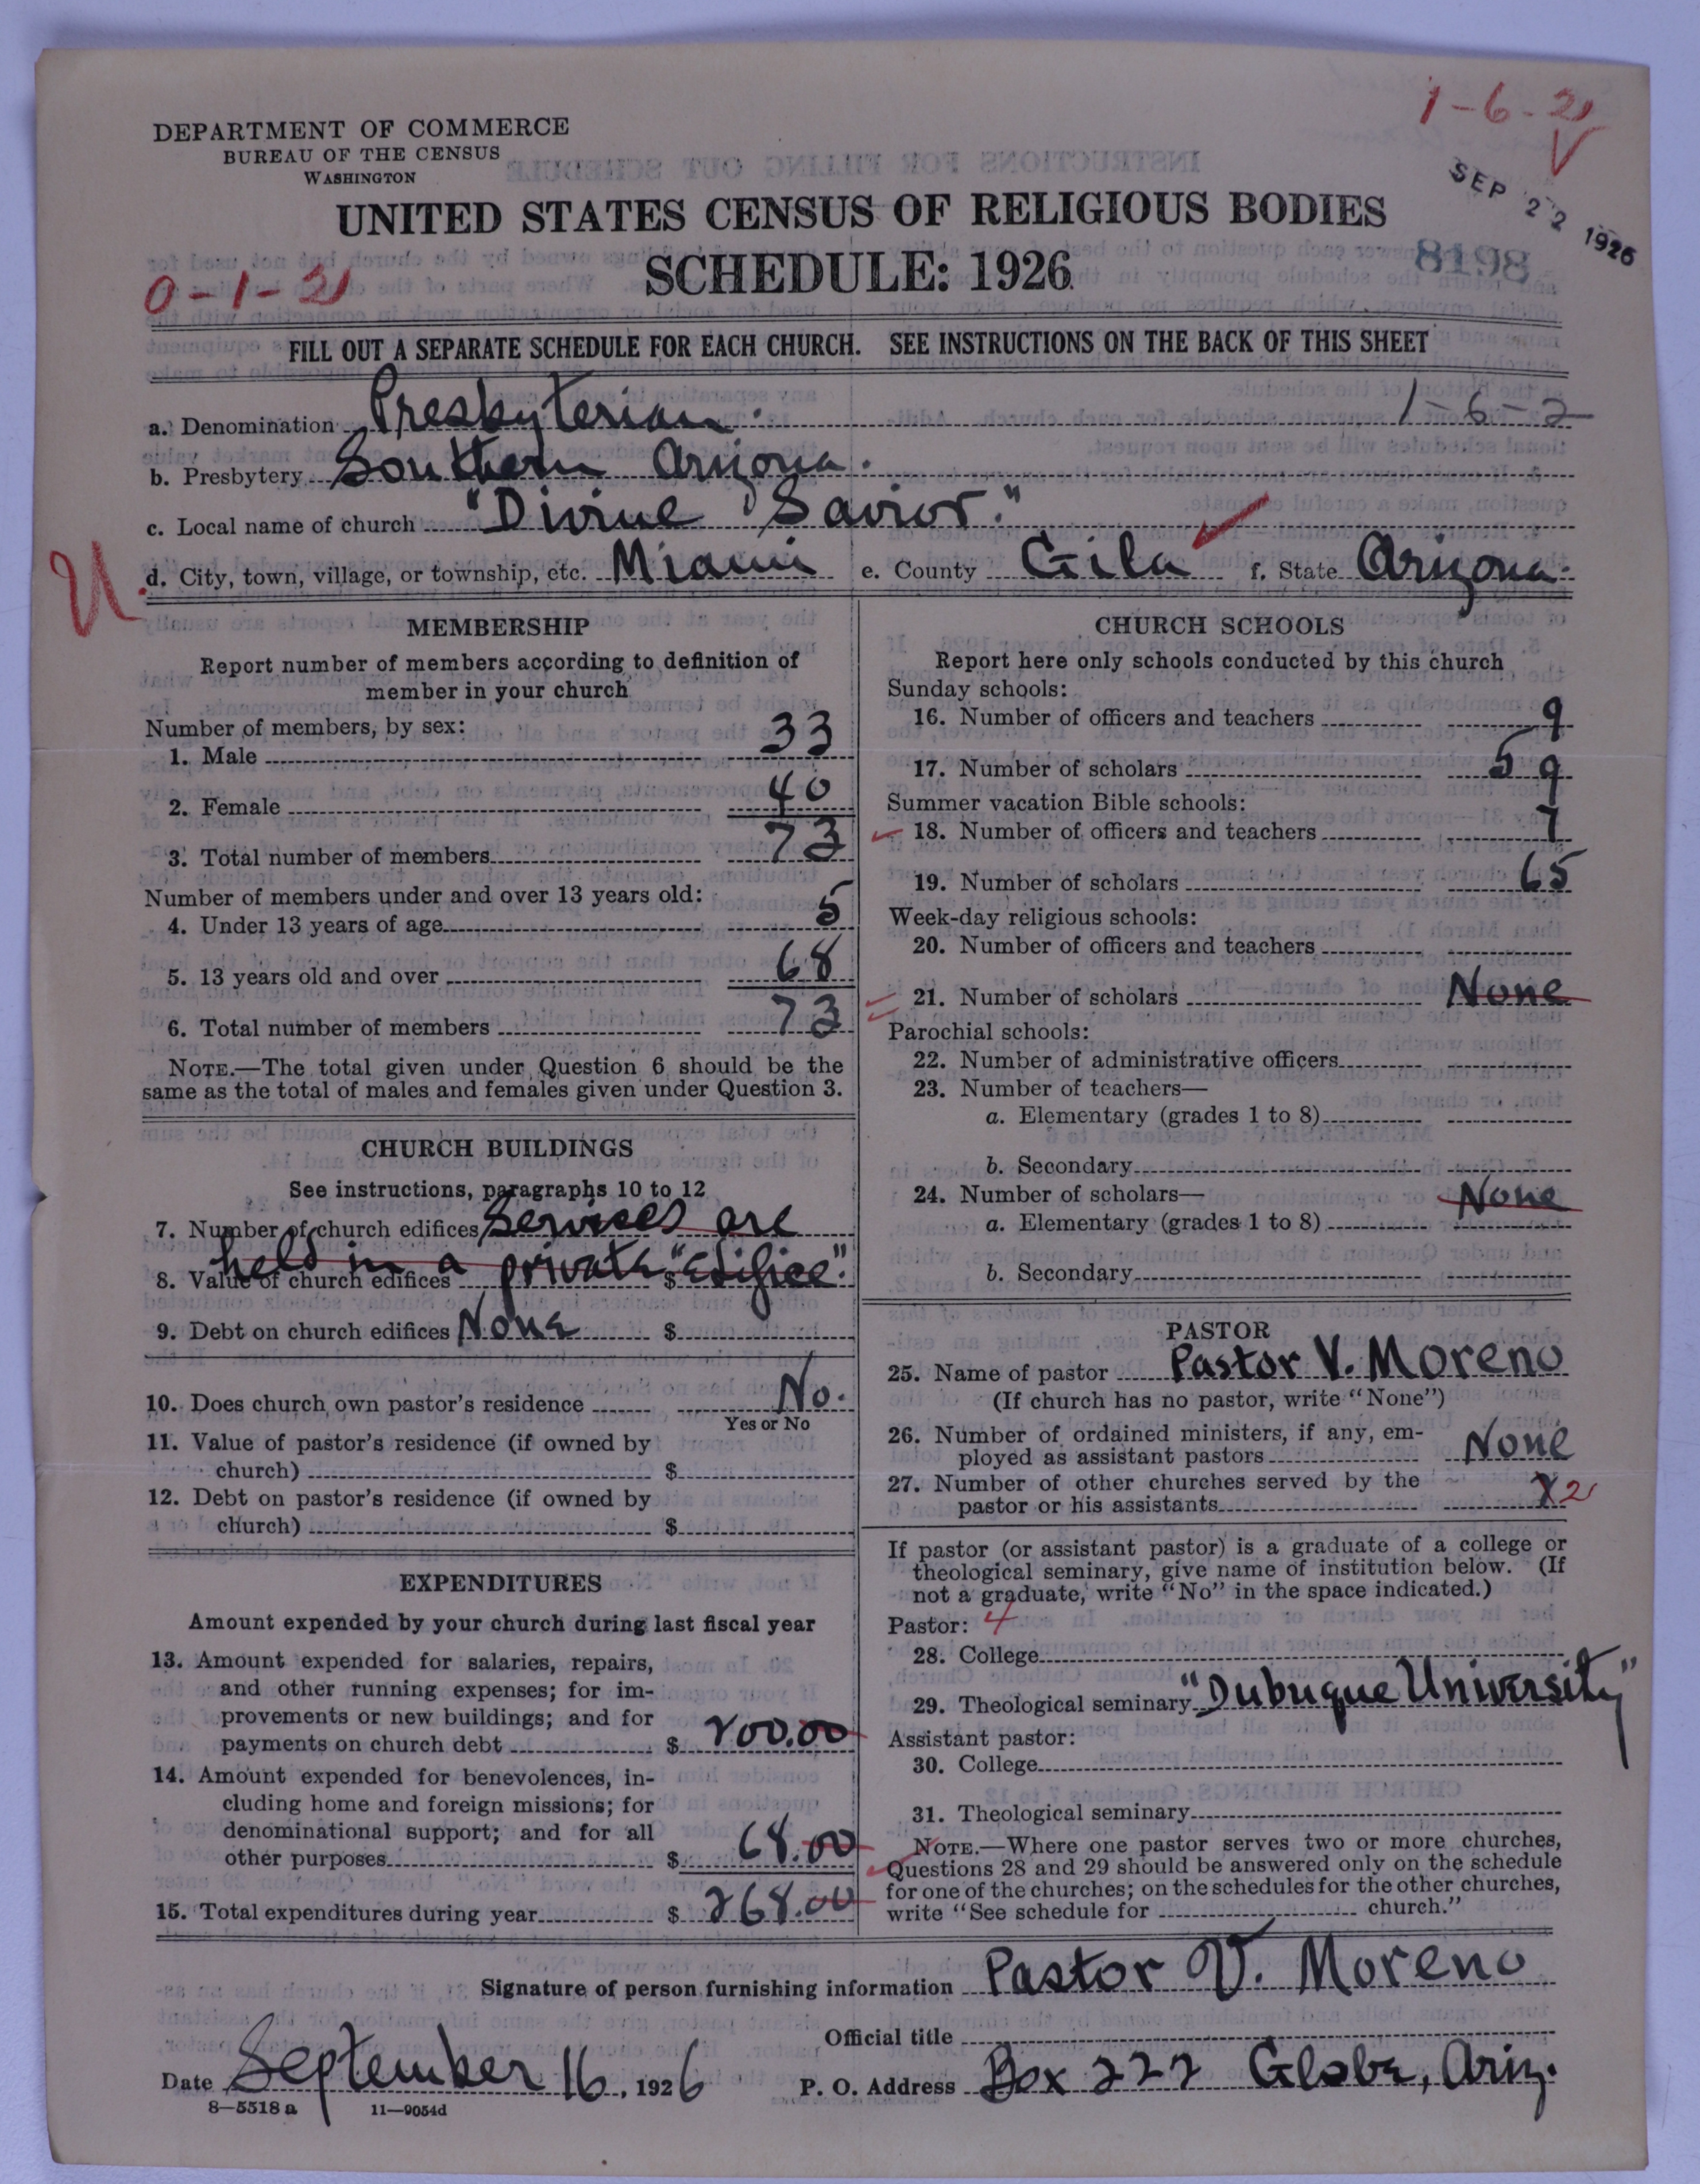 1-6-2
V
DEPARTMENT OF COMMERCE
BUREAU OF THE CENSUS
WASHINGTON
SEP 22 1926
UNITED STATES CENSUS OF RELIGIOUS BODIES
8198
SCHEDULE: 1926
0-1-2
FILL OUT A SEPARATE SCHEDULE FOR EACH CHURCH. SEE INSTRUCTIONS ON THE BACK OF THIS SHEET
a. Denomination Presbyterian. 1-6-2
b. Presbytery Southern Arizona.
c. Local name of church "Divine Savior."
U
d. City, town, village, or township, etc. Miami e. County Gila f. State Arizona.
MEMBERSHIP
Report number of members according to definition of
member in your church
Number of members, by sex:
1. Male 33
2. Female 40
3. Total number of members 73
Number of members under and over 13 years old:
4. Under 13 years of age 5
5. 13 years old and over 68
6. Total number of members 73
NOTE.—The total given under Question 6 should be the
same as the total of males and females given under Question 3.
CHURCH BUILDINGS
See instructions, paragraphs 10 to 12
7. Number of church edifices Services are
held in a private "Edifice".
8. Value of church edifices $
9. Debt on church edifices None $
10. Does church own pastor's residence No.
Yes or No
11. Value of pastor's residence (if owned by
church) $
12. Debt on pastor's residence (if owned by
church) $
EXPENDITURES
Amount expended by your church during last fiscal year
13. Amount expended for salaries, repairs,
and other running expenses; for im-
provements or new buildings; and for
payments on church debt $ 200.00
14. Amount expended for benevolences, in-
cluding home and foreign missions; for
denominational support; and for all
other purposes $ 68.00
15. Total expenditures during year $ 268.00
CHURCH SCHOOLS
Report here only schools conducted by this church
Sunday schools:
16. Number of officers and teachers 9
17. Number of scholars 59
Summer vacation Bible schools:
18. Number of officers and teachers 7
19. Number of scholars 65
Week-day religious schools:
20. Number of officers and teachers
21. Number of scholars None
Parochial schools:
22. Number of administrative officers
23. Number of teachers—
a. Elementary (grades 1 to 8)
b. Secondary
24. Number of scholars— None
a. Elementary (grades 1 to 8)
b. Secondary
PASTOR
25. Name of pastor Pastor V. Moreno
(If church has no pastor, write "None")
26. Number of ordained ministers, if any, em-
ployed as assistant pastors None
27. Number of other churches served by the
pastor or his assistants 2
If pastor (or assistant pastor) is a graduate of a college or
theological seminary, give name of institution below. (If
not a graduate, write "No" in the space indicated.)
Pastor: 4
28. College
29. Theological seminary "Dubuque University"
Assistant pastor:
30. College
31. Theological seminary
NOTE.—Where one pastor serves two or more churches,
Questions 28 and 29 should be answered only on the schedule
for one of the churches; on the schedules for the other churches,
write "See schedule for church."
Signature of person furnishing information Pastor V. Moreno
Official title
Date September 16, 1926 P. O. Address Box 222 Globe, Ariz.
8—5518 a 11—9054d